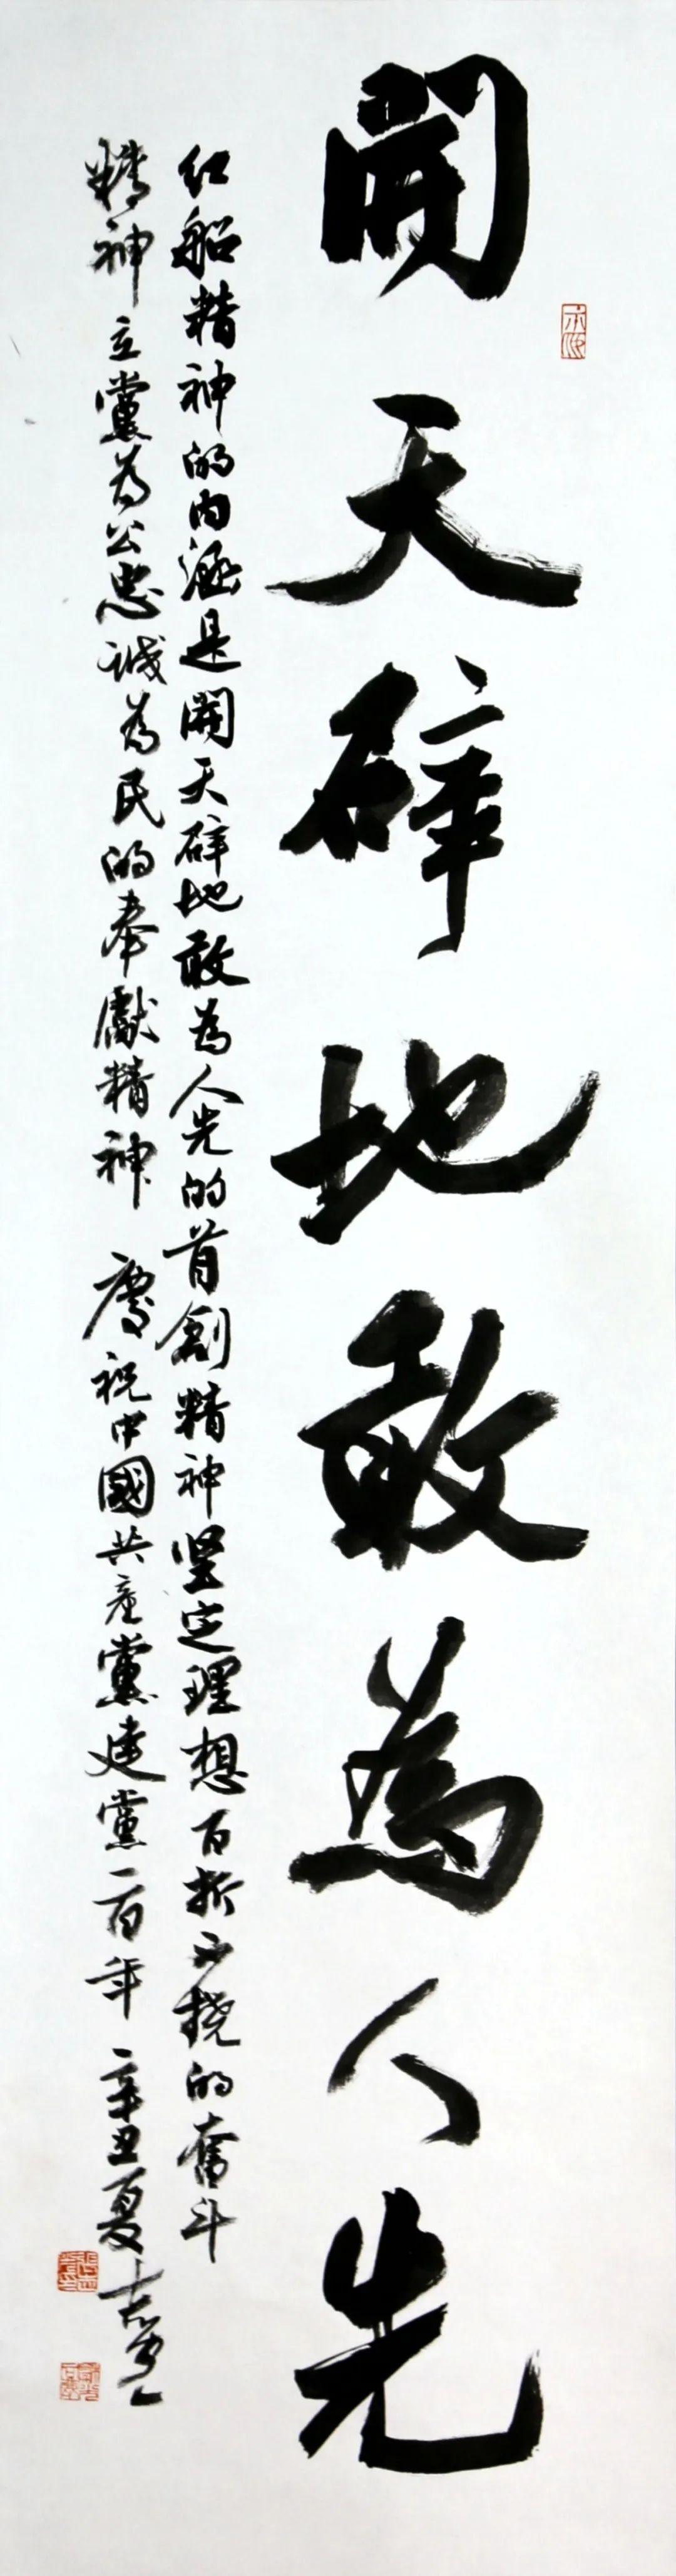 開天辟地敢為人先
红船精神的内涵是開天辟地敢為人先的首創精神坚定理想百折不撓的奮斗
精神立黨為公忠诚為民的奉獻精神 慶祝中國共産黨建黨一百年 辛丑夏